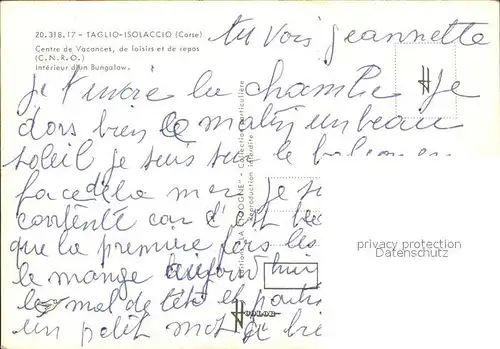 20.318.17 - TAGLIO-ISOLACCIO (Corse)
Centre de Vacances, de loisirs et de repos
(C.N.R.O.)
Intérieur d'un Bungalow.
tu vois jeannette
je t'envoie la chambre je
dors bien le matin un beau
soleil je suis sur le balcon en
face de la mer je s
contente car c'est be
que la première fois les
le mange aujourd'hui
le mal de tête et parti
un petit mot de
"LA CIGOGNE" - Collection particulière
Reproduction interdite
privacy protection
Datenschutz